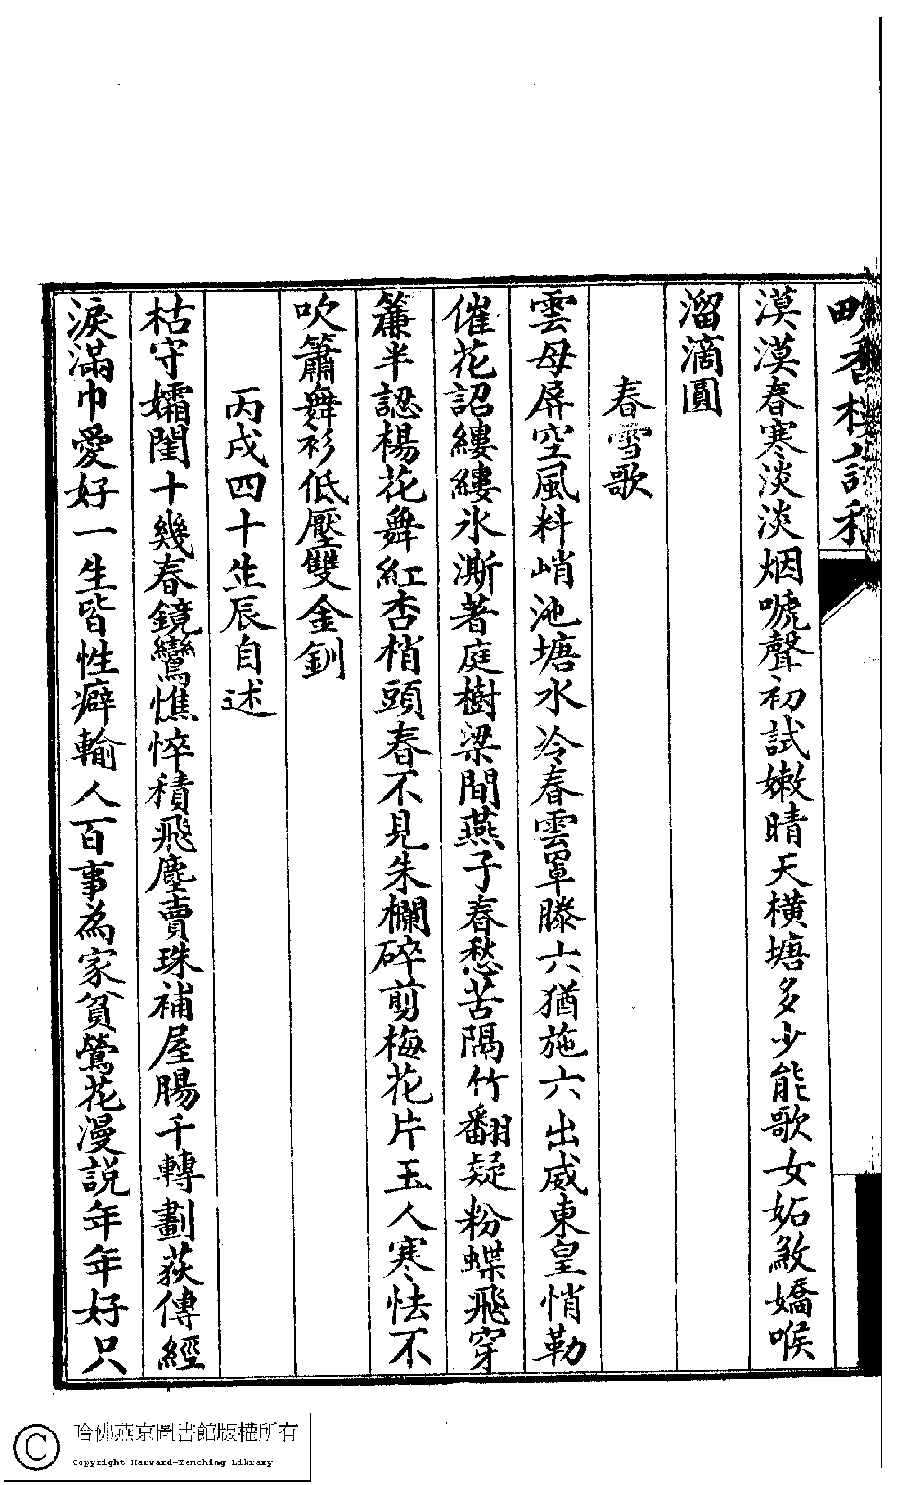 香樓詩稿
漠漠春寒淡淡烟嗁聲初試嫩晴天橫塘多少能歌女妬敎嬌喉
溜滴圓
春雪歌
雲母屏空風料峭池塘水冷春雲罩滕六猶施六出威東皇悄勒
催花詔縷縷氷澌著庭樹梁間燕子春愁苦隔竹翻疑粉蝶飛穿
簾半認楊花舞紅杏梢頭春不見朱欄碎剪梅花片玉人寒怯不
吹簫舞衫低壓雙金釧
丙戌四十生辰自述
枯守孀閨十幾春鏡鸞憔悴積飛塵賣珠補屋腸千轉劃荻傳經
淚滿巾愛好一生皆性癖輸人百事為家貧鶯花漫説年年好只
哈佛燕京圖書館版權所有
Copyright Harvard-Yenching Library